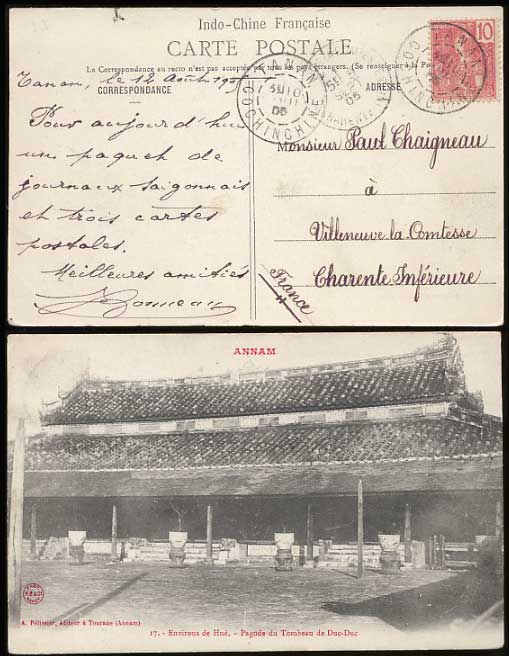 Indo-Chine Française
CARTE POSTALE
La Correspondance au recto n'est pas acceptée par tous les pays étrangers. (Se renseigner à la Po
CORRESPONDANCE
ADRESSE
10
TANAN
COCHINCHINE
05
Tanan, le 12 Août 1905
Pour aujourd'hui
un paquet de
journaux saigonnais
et trois cartes
postales.
Meilleures amitiés
JBonneau
Monsieur Paul Chaigneau
à
Villeneuve la Comtesse
Charente Inférieure
France
ANNAM
A. Pélissier, éditeur à Tourane (Annam)
17. - Environs de Hué. - Pagode du Tombeau de Duc-Duc